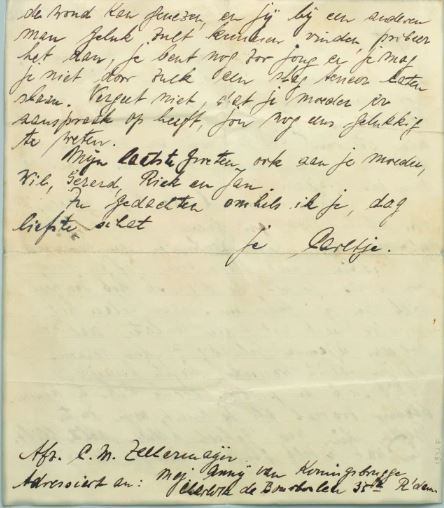 de wond kan genezen, en jij bij een anderen
man geluk zult kunnen vinden, probeer
het dan, je bent nog zoo jong en je mag
je niet door zulk een slag terneer laten
slaan. Vergeet niet, dat je moeder er
aanspraak op heeft, jou nog eens gelukkig
te weten.
Mijn laatste groeten, ook aan je moeder,
Wil, Gerard, Riek en Jan.
In gedachten omhels ik je, dag
liefste schat
je Careltje.
Afz. C. M. Zellermayer
Adressiert an: Mej. Anny van Koningsbrugge
Charlotte de Bourbonlaan 35 R'dam